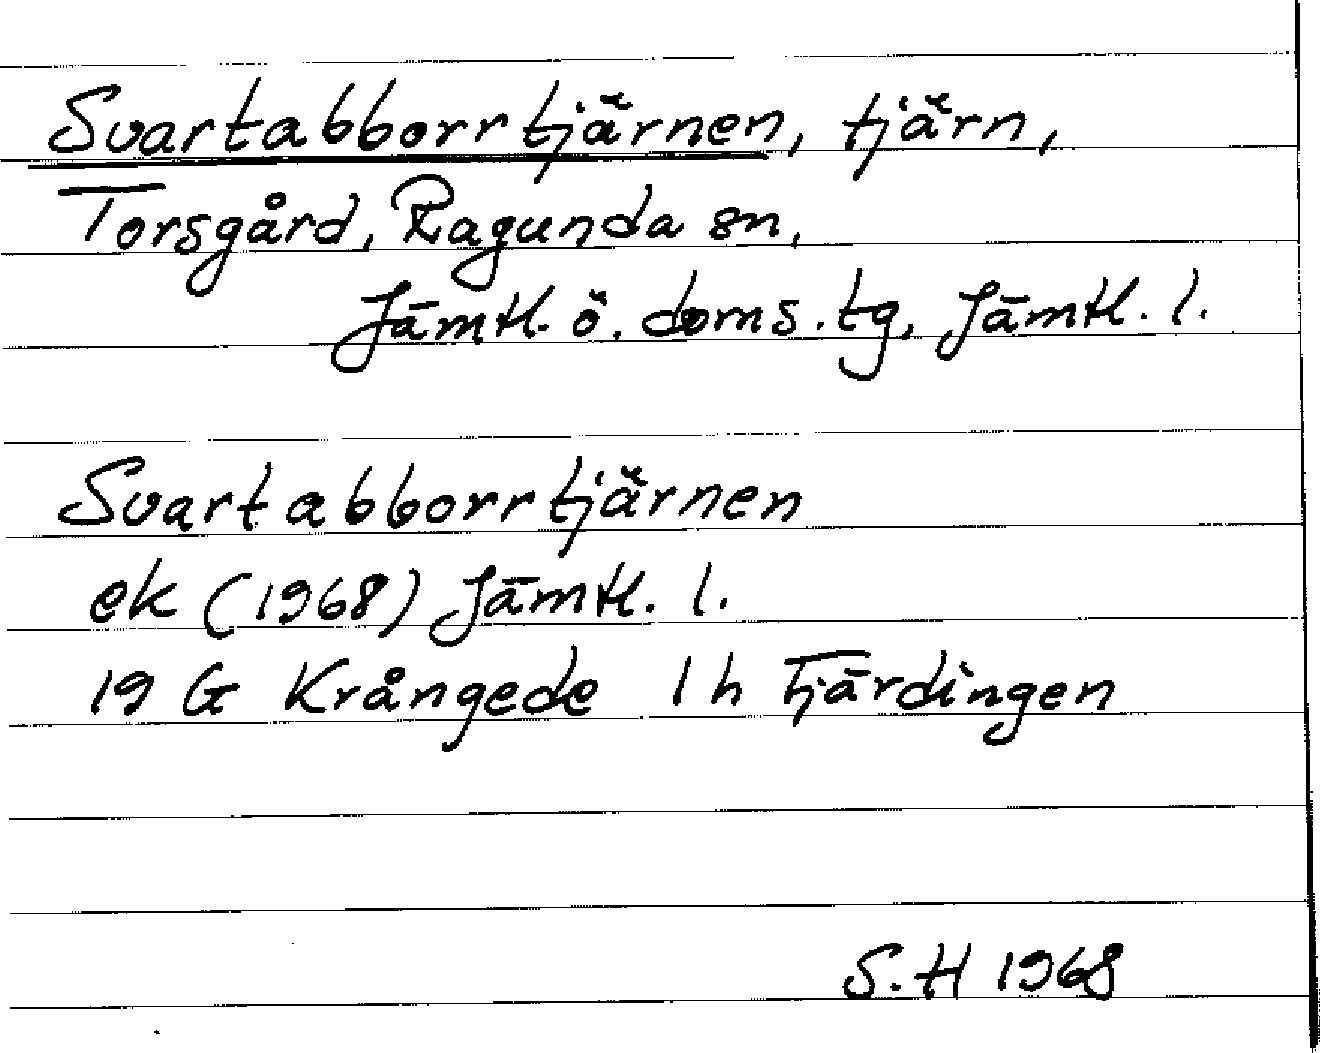 Svartabborrtjärnen, tjärn,
Torsgård, Ragunda sn,
Jämtl. ö. doms. tg, Jämtl. l.
Svartabborrtjärnen
ek (1968) Jämtl. l.
19 G Krångede 1 h Fjärdingen
S. H 1968